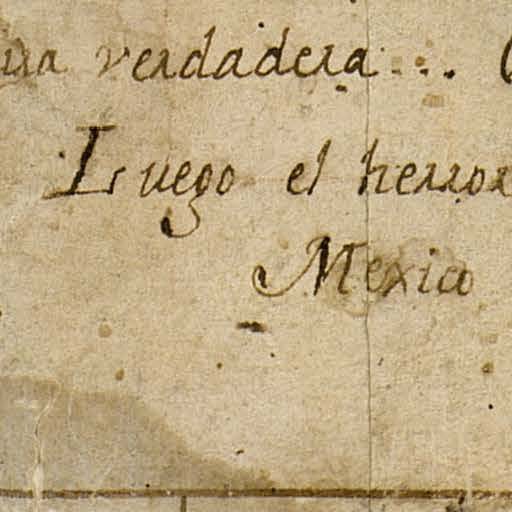 verdadera...
Luego el herror
Mexico